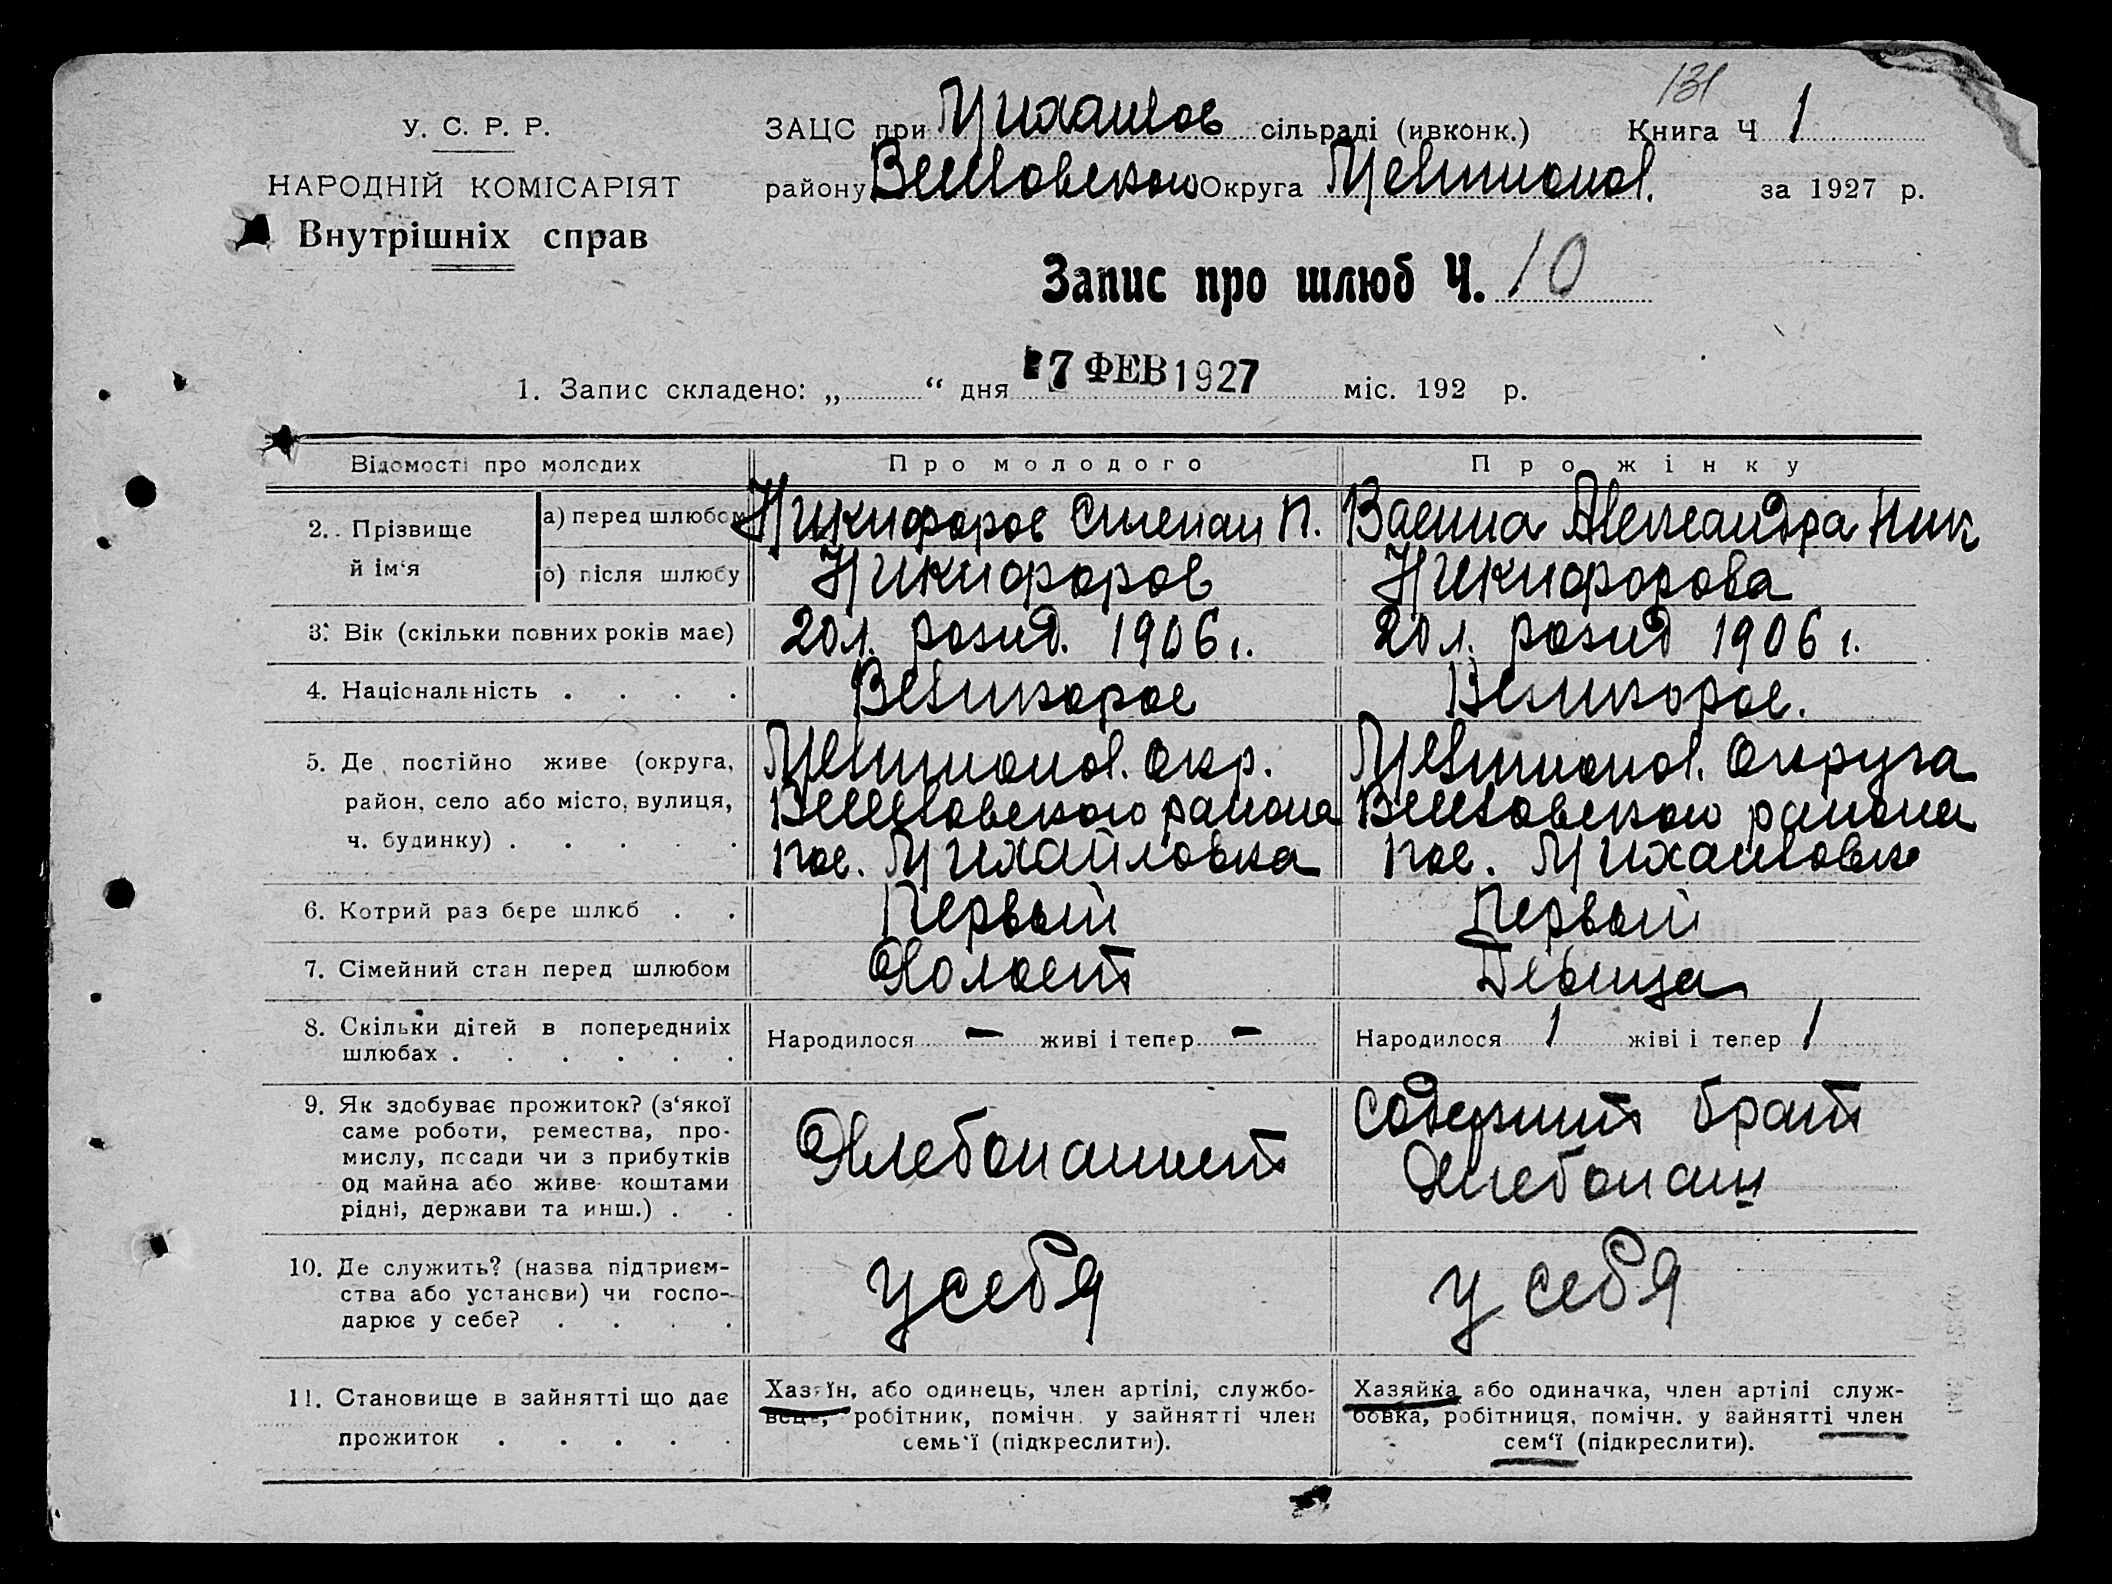 131
У. С. Р. Р. ЗАЦС при Михайлов сільраді (ивконк.) Книга Ч 1
НАРОДНІЙ КОМІСАРІЯТ району Округа Мелитопол. за 1927 р.
Внутрішніх справ
Запис про шлюб Ч. 10
1. Запис складено: „ “ дня 7 ФЕВ 1927 міс. 192 р.
Відомості про молодих Про молодого Про жінку
2. Прізвище й ім‘я а) перед шлюбом Никифоров Степан П. Александра Ник
б) після шлюбу Никифоров Никифорова
3. Вік (скільки повних років має) 20 л. рожд. 1906 г. 20 л. рожд 1906 г.
4. Національність . . . . Великорос Великорос.
5. Де постійно живе (округа, Мелитопол. окр. Мелитопол. Округа
район, село або місто, вулиця, района района
ч. будинку) . . . . . пос. Михайловка пос. Михайловка
6. Котрий раз бере шлюб . . Первый Первый
7. Сімейний стан перед шлюбом Холост Девица
8. Скільки дітей в попередниіх Народилося — живі і тепер — Народилося 1 жіві і тепер 1
шлюбах . . . . . .
9. Як здобуває прожиток? (з‘якої содержит брат
саме роботи, ремества, про-
мислу, посади чи з прибутків Хлебопашест
од майна або живе коштами Хлебопаш
рідні, держави та инш.) . .
10. Де служить? (назва підприєм- у себя у себя
ства або установи) чи госпо-
дарює у себе? . . . .
11. Становище в зайнятті що дає Хазяїн, або одинець, член артілі, службо- Хазяйка або одиначка, член артілі служ-
вець, робітник, помічн. у зайнятті член бовка, робітниця, помічн. у зайнятті член
прожиток . . . . . семь‘ї (підкреслити). сем‘ї (підкреслити).